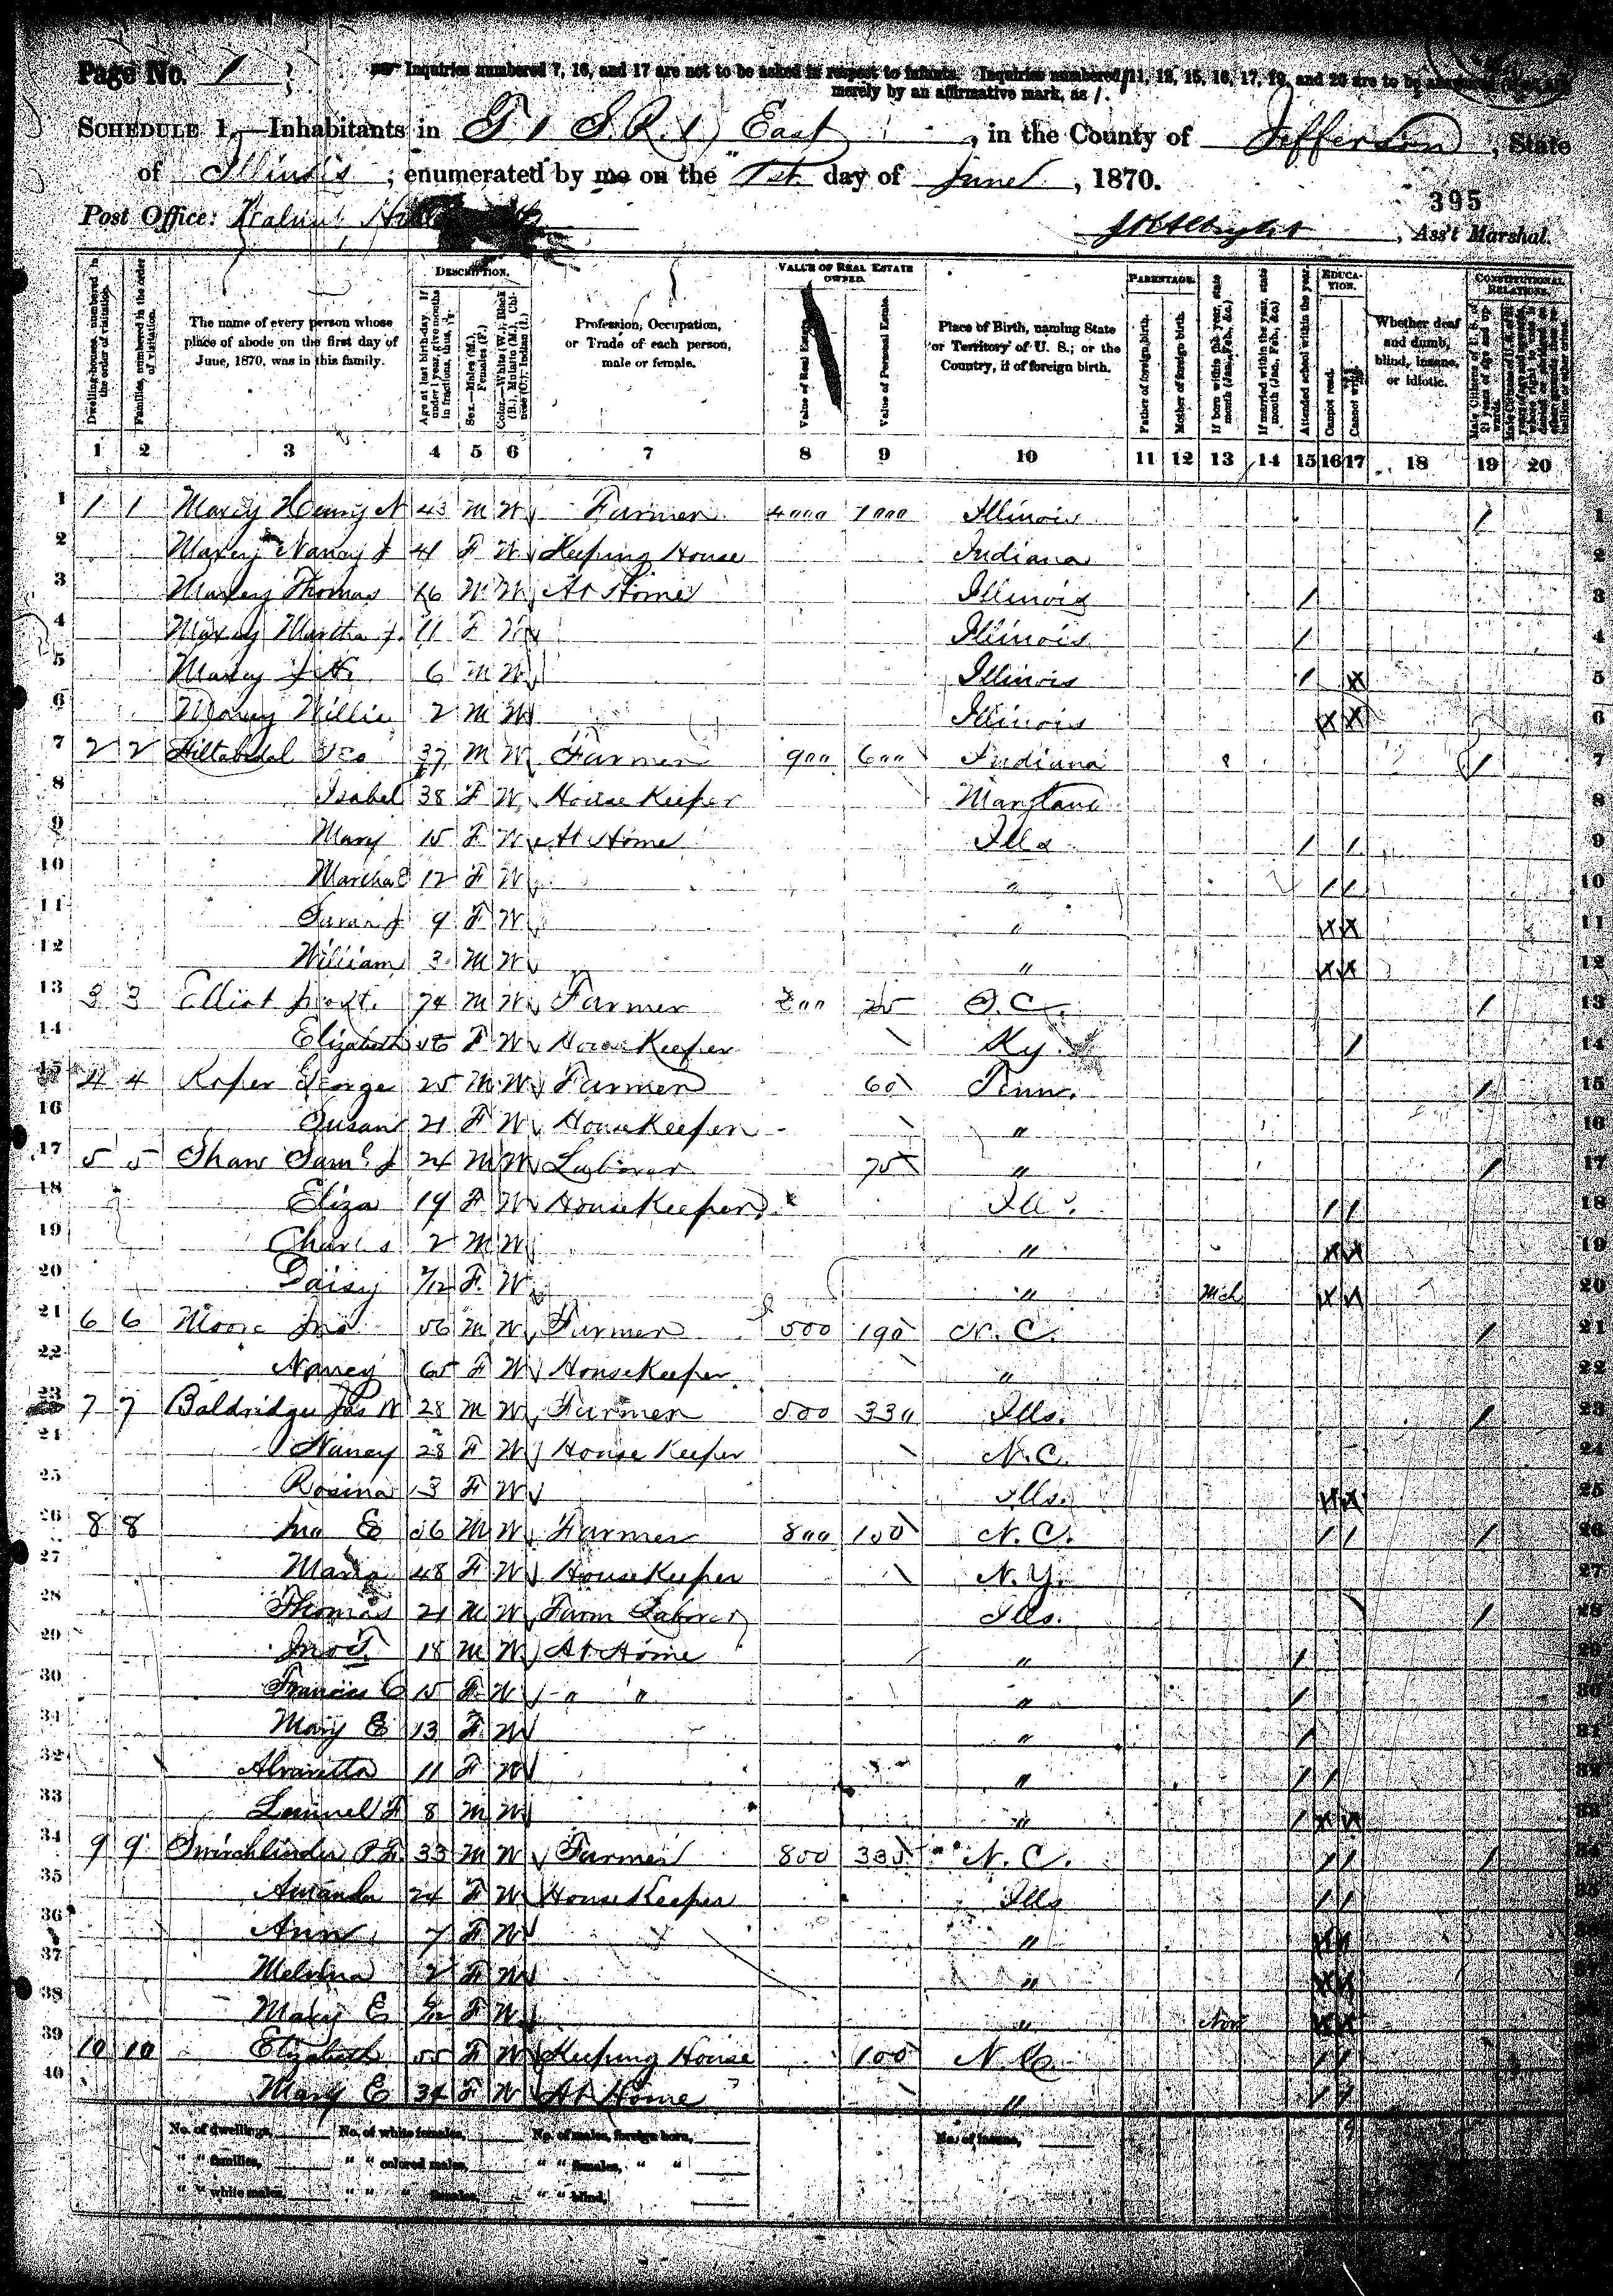 Page No. 1
Inquiries numbered 7, 16, and 17 are not to be asked in respect to infants. Inquiries numbered 11, 12, 15, 16, 17, 19, and 20 are to be answered
merely by an affirmative mark, as /.
SCHEDULE 1.—Inhabitants in T 1 S. R. 1 East, in the County of Jefferson, State
of Illinois; enumerated by me on the 1st day of June, 1870.
395
Post Office: Walnut Hill
Ass't Marshal.
DESCRIPTION. VALUE OF REAL ESTATE OWNED. PARENTAGE. EDUCATION. CONSTITUTIONAL RELATIONS.
Dwelling-houses, numbered in the order of visitation.
Families, numbered in the order of visitation.
The name of every person whose place of abode on the first day of June, 1870, was in this family.
Age at last birth-day. If under 1 year, give months in fractions, thus,
Sex.—Males (M.), Females (F.)
Color.—White (W.), Black (B.), Mulatto (M.), Chinese (C.), Indian (I.)
Profession, Occupation, or Trade of each person, male or female.
Value of Real Estate.
Value of Personal Estate.
Place of Birth, naming State or Territory of U. S.; or the Country, if of foreign birth.
Father of foreign birth.
Mother of foreign birth.
If born within the year, state month (Jan., Feb., &c.)
If married within the year, state month (Jan., Feb., &c.)
Attended school within the year.
Cannot read.
Cannot write.
Whether deaf and dumb, blind, insane, or idiotic.
Male Citizens of U. S. of 21 years of age and upwards.
1 2 3 4 5 6 7 8 9 10 11 12 13 14 15 16 17 18 19 20
1 1 1 Maxey Henry N 43 M W Farmer 4000 1000 Illinois / 1
2 Maxey Nancy J 41 F W Keeping House Indiana 2
3 Maxey Thomas 16 M W At Home Illinois / 3
4 Maxey Martha J. 11 F W Illinois / 4
5 Maxey 6 M W Illinois / X 5
6 Maxey Willie 2 M W Illinois X X 6
7 2 2 Hiltabidal Geo 37 M W Farmer 900 600 Indiana / 7
8 Isabel 38 F W House Keeper Maryland 8
9 Mary 15 F W At Home Ills / / 9
10 Martha E 12 F W " / / 10
11 Sarah J 9 F W " X X 11
12 William 3 M W " X X 12
13 3 3 Elliot 74 M W Farmer 25 S.C. / 13
14 Elizabeth F W House Keeper Ky. / 14
15 4 4 Roper George 25 M W Farmer 60 Tenn. / 15
16 Susan 21 F W HouseKeeper " 16
17 5 5 Shaw Saml J 24 M W Laborer 75 " / 17
18 Eliza 19 F W HouseKeeper Ill / / 18
19 Charles 2 M W " X X 19
20 Daisy F. W " Mch X X 20
21 6 6 Moore Jno 56 M W Farmer 500 190 N. C. / 21
22 Nancy 65 F W HouseKeeper " 22
23 7 7 Baldridge Jas W 28 M W Farmer 500 330 Ills. / 23
24 Nancy 28 F W House Keeper N. C. 24
25 Rosina 3 F W Ills. X X 25
26 8 8 Jno E 56 M W Farmer 800 150 N. C. / / / 26
27 Maria 48 F W HouseKeeper N. Y. 27
28 Thomas 21 M W Farm Laborer Ills. / 28
29 Jno T. 18 M W At Home " / 29
30 Francis C 15 F. W " " " / 30
31 Mary E 13 F. W " / 31
32 Alvaretta 11 F W " / / 32
33 Lemuel F 8 M W " / X X 33
34 9 9 33 M W Farmer 800 335 N. C. / / / 34
35 Amanda 24 F W HouseKeeper Ills / / 35
36 Ann 7 F W " X X 36
37 Melvina 2 F W " X X 37
38 Mary E F W " Nov X X 38
39 10 10 Elizabeth 55 F W Keeping House 100 N. C. / /
40 Mary E 34 F W At Home " / /
No. of dwellings, No. of white females, No. of males, foreign born, No. of insane,
" " families, " " colored males, " " females, " "
" " white males, " " " females, " " blind,